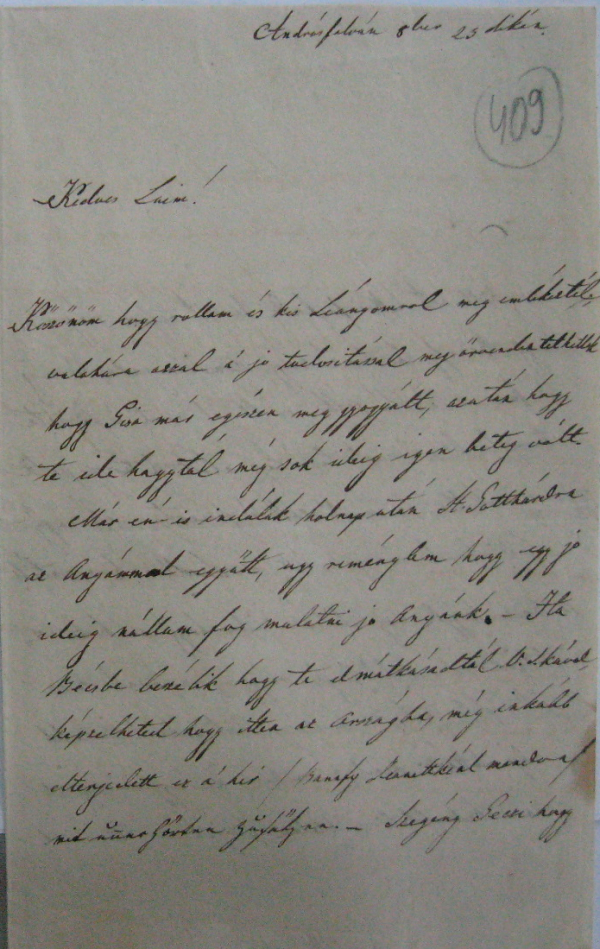 Andrásfalván 8ber 23 dikán.
409
Kedves Luim!
Köszönöm hogy rollam és kis Leángomrol meg emlékeztél,
valahára azzal á jó tudositással megörvendeztethettek
hogy Gisa már egészen meg gyogyúlt, azután hogy
te ide hagytál még sok ideig igen beteg vólt.
Már én is indúlok holnap után St. Gotthárdra
az Anyámmal együtt, ugy reménylem hogy egy jó
ideig nállam fog mulatni jó Anyánk. – Ha
Bécsbe beszélik hogy te elmátkásodtál
képzelheted hogy itten az Országba, még inkább
elterjedett ez á hir / Banafy mondva /
mit – Szegény Pezsi hogy